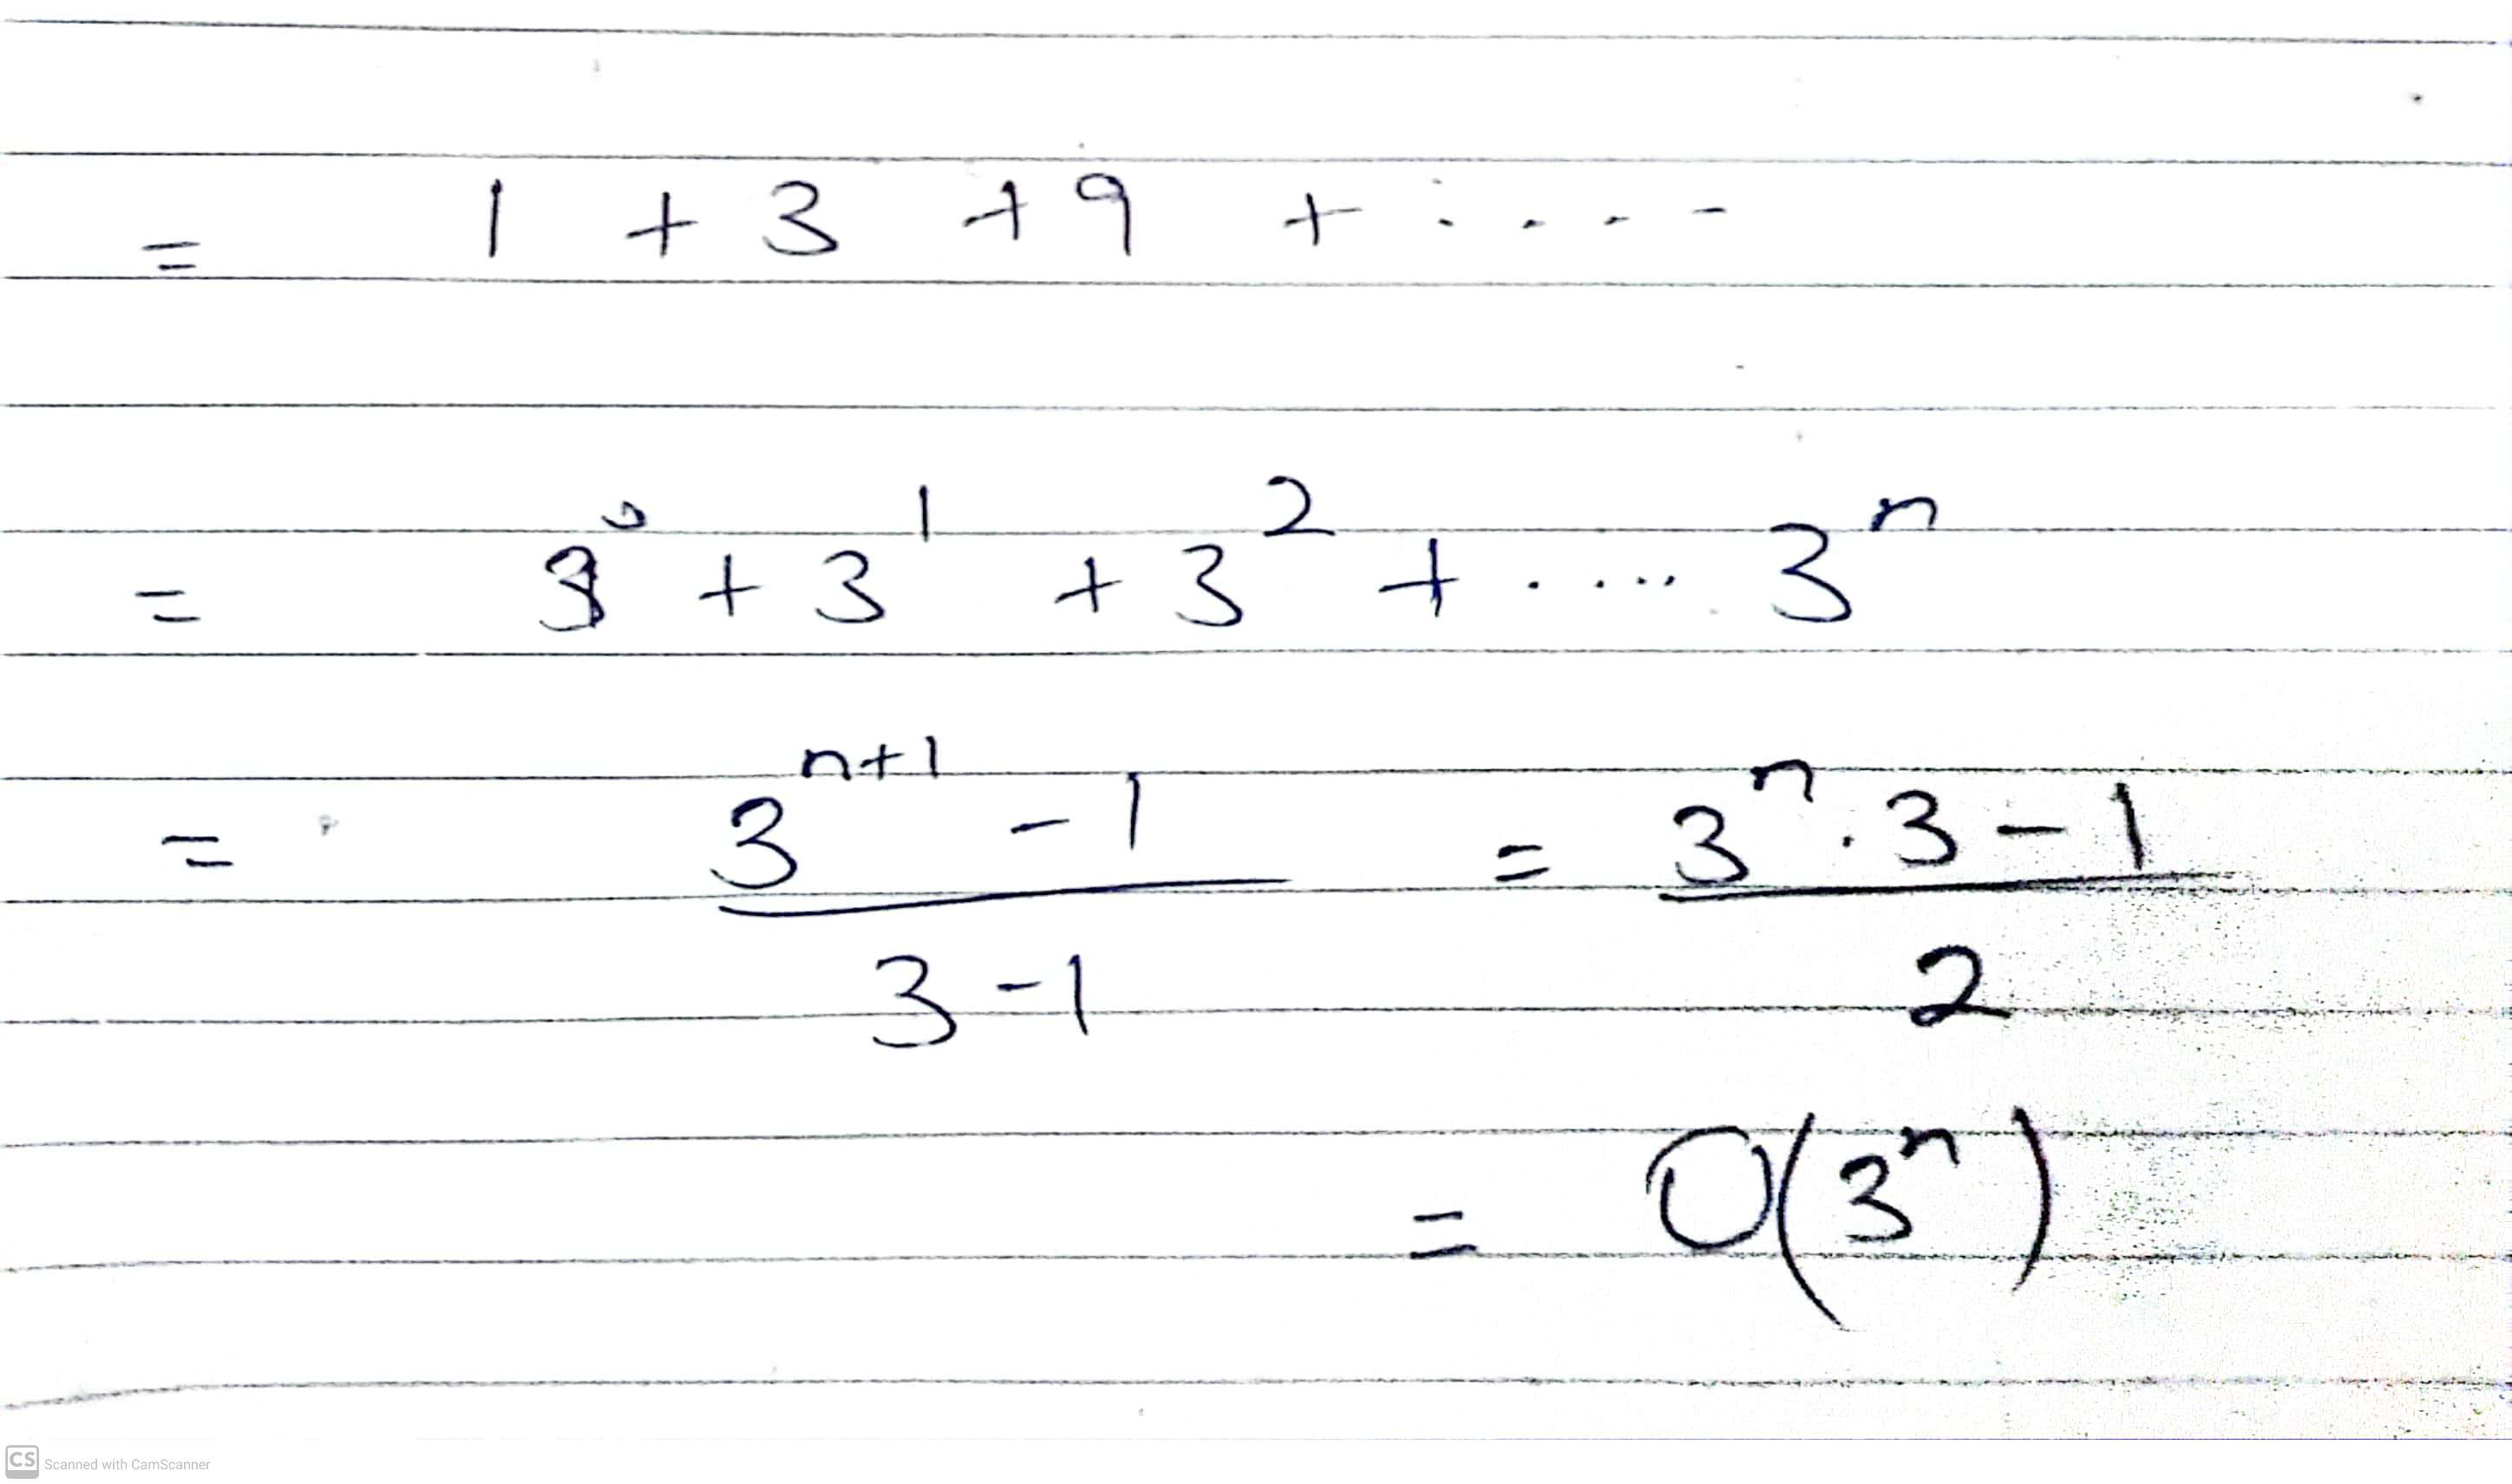 = 1 + 3 + 9 + .... -
= 3⁰ + 3¹ + 3² + ..... 3ⁿ
= (3ⁿ⁺¹ - 1) / (3 - 1) = (3ⁿ . 3 - 1) / 2
= O(3ⁿ)
CS Scanned with CamScanner